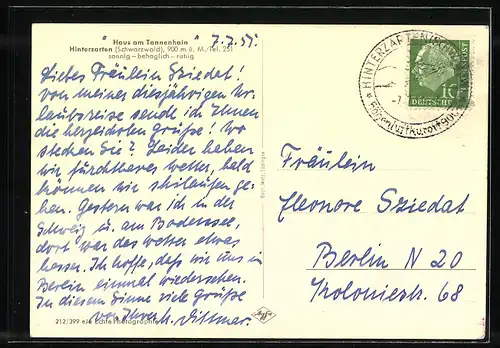 " Haus am Tannenhain "
Hinterzarten (Schwarzwald), 900 m ü. M./Tel. 251
sonnig – behaglich – ruhig
7.2.55.
Liebes Fräulein Sziedat!
Von meines diesjährigen Ur-
laubsreise sende ich Ihnen
die herzlichsten Grüße! Wo
stecken Sie? Leider haben
wir furchtbares Wetter, bald
können wir skilaufen ge-
hen. Gestern war ich in der
Schweiz u. am Bodensee,
dort war das Wetter etwas
besser. Ich hoffe, daß wir uns in
Berlin einmal wiedersehen.
In diesem Sinne viele Grüße
von Ihrem Dittmar.
212/399 Echte Photographie
HINTERZARTEN
Höhenluftkurort
DEUTSCHE BUNDESPOST
10
Fräulein
Eleonore Sziedat
Berlin N 20
Koloniestr. 68